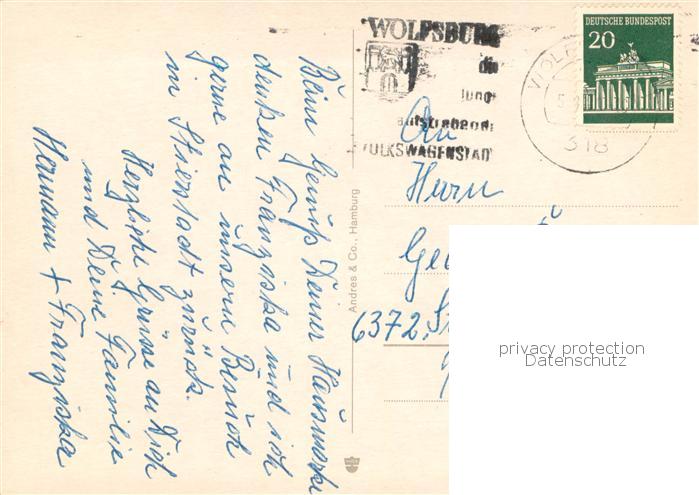 WOLFSBURG
die
junge
aufstrebende
VOLKSWAGENSTADT
DEUTSCHE BUNDESPOST
20
318
Beim Genuß Deiner Hausmarke
denken Franziska und ich
gerne an unsern Besuch
in Stierstadt zurück.
Herzliche Grüsse an Dich
und Deine Familie
Hermann + Franziska
Andres & Co., Hamburg
An
Herrn
6372
privacy protection
Datenschutz